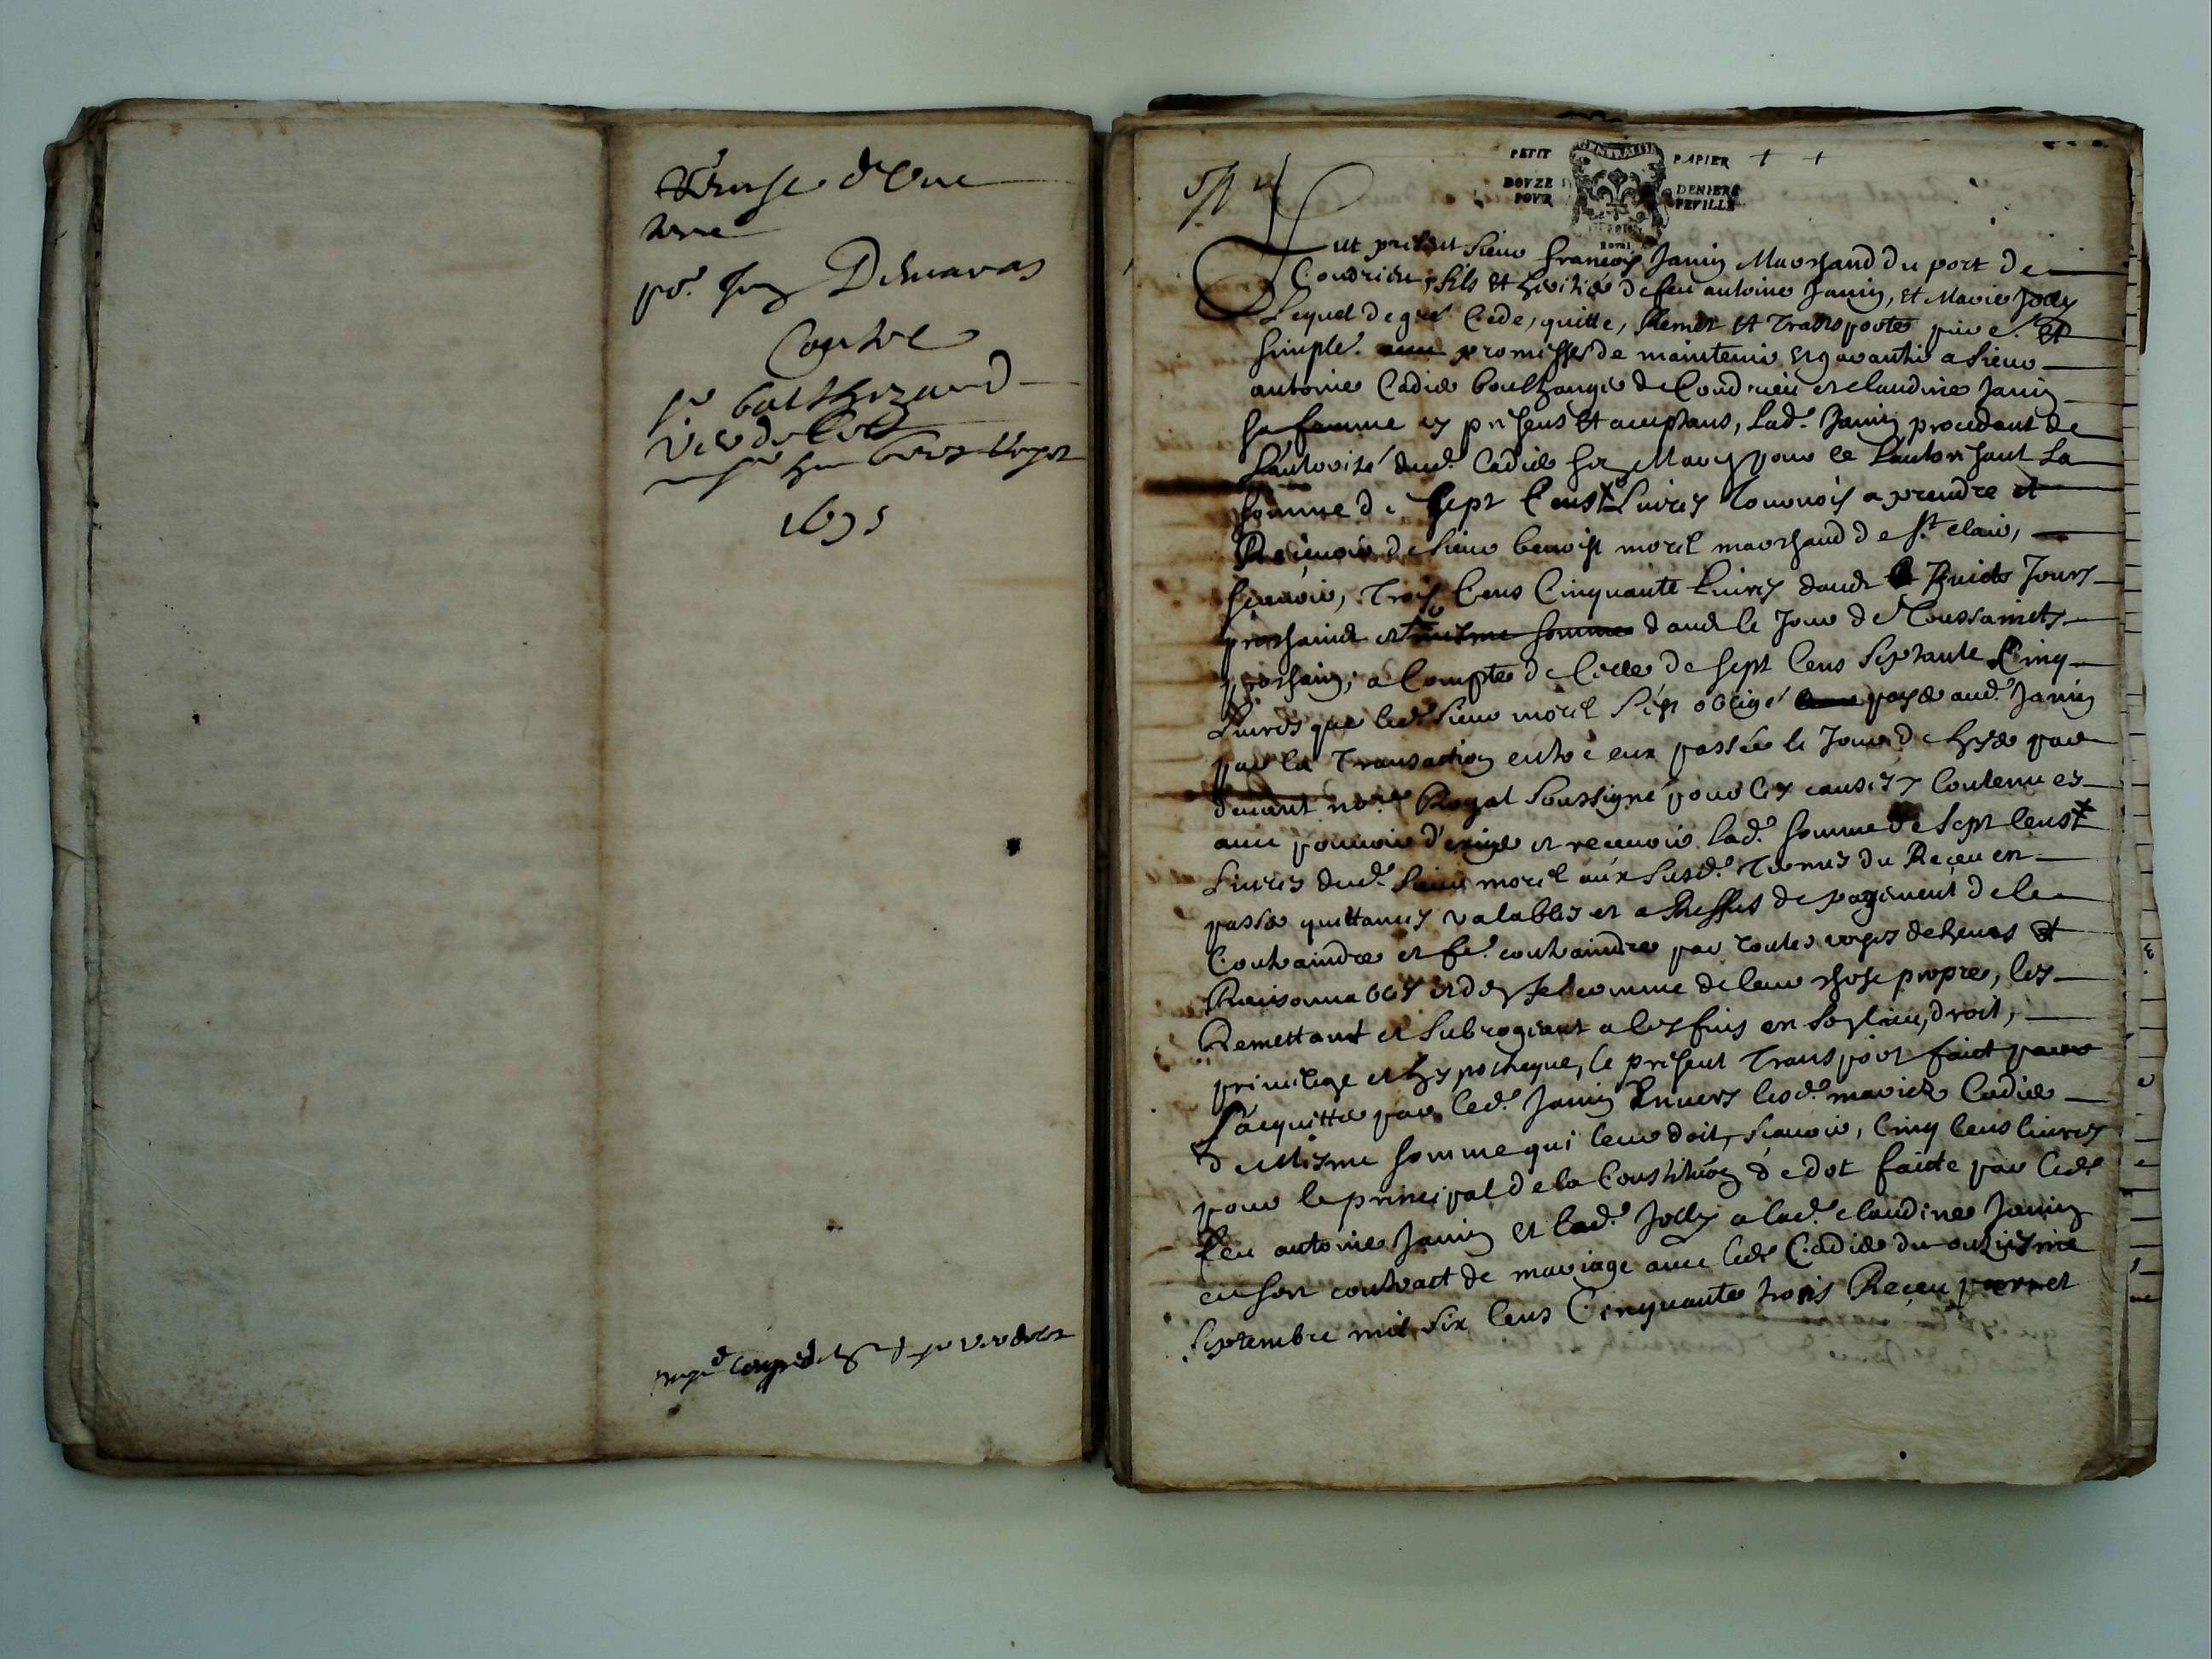 d'une
terre
po.
Contre
sr balthezard
1695
PETIT PAPIER
DOVZE DENIERS
POVR FEVILLE
GENERALITE
Fut present Sieur françois Janin Marchand du port de
Condrieu, fils et heritier de feu antoine Janin, et Marie Jolly
Lequel de gré Cede, quitte, Remet et Transporte pure et
simple promesses de maintenir et garantir a Sieur
antoine Cadier boulhanger de Condrieu et claudine Janin
sa femme ey presens et aceptans, Lad. Janin procedant de
L'autorité dud. Cadier soy Mary pour ce L'authorisant La
somme de Sept Cens Livres Tournois a prendre et
Recevoir de Sieur benoist morel marchand de St. clair,
sçavoir, Trois Cens Cinquante Livres dans Jours
prochains et mesme somme dans le Jour de Toussainets
prochain, a Compte de Celle de sept Cens Septante Cinq
Livres que led. Sieur morel s'est obligé payer aud. Janin
par la Transaction entre eux passée le Jour d'hyer par
devant nore. Royal soussigné pour les causes y Contenues
avec pouvoir d'exiger et recevoir lad. somme de Sept Cens
Livres dud. Sieur morel aux susd. Termes du Reçeu en
passer quittances valables et a Reffus de payement de le
Contraindre et fe. contraindre par toutes voyes deheues et
Raisonnables comme de leur chose propre, les
Remettant et Subrogeant a ces fins en soy lieu, droit,
privilege et hypotheque, le present Transport faict pour
S'acquitter par led. Janin Envers lesd. mariez Cadier
de Mesme somme qui leur doit, sçavoir, Cinq Cens livres
pour le principal de la Constituõn de dot faicte par led.
feu antoine Janin et lad. Jolly a lad. claudine Janin
en son contract de mariage avec led. Cadier du onziesme
Septembre mil six Cens Cinquante trois Reçeu